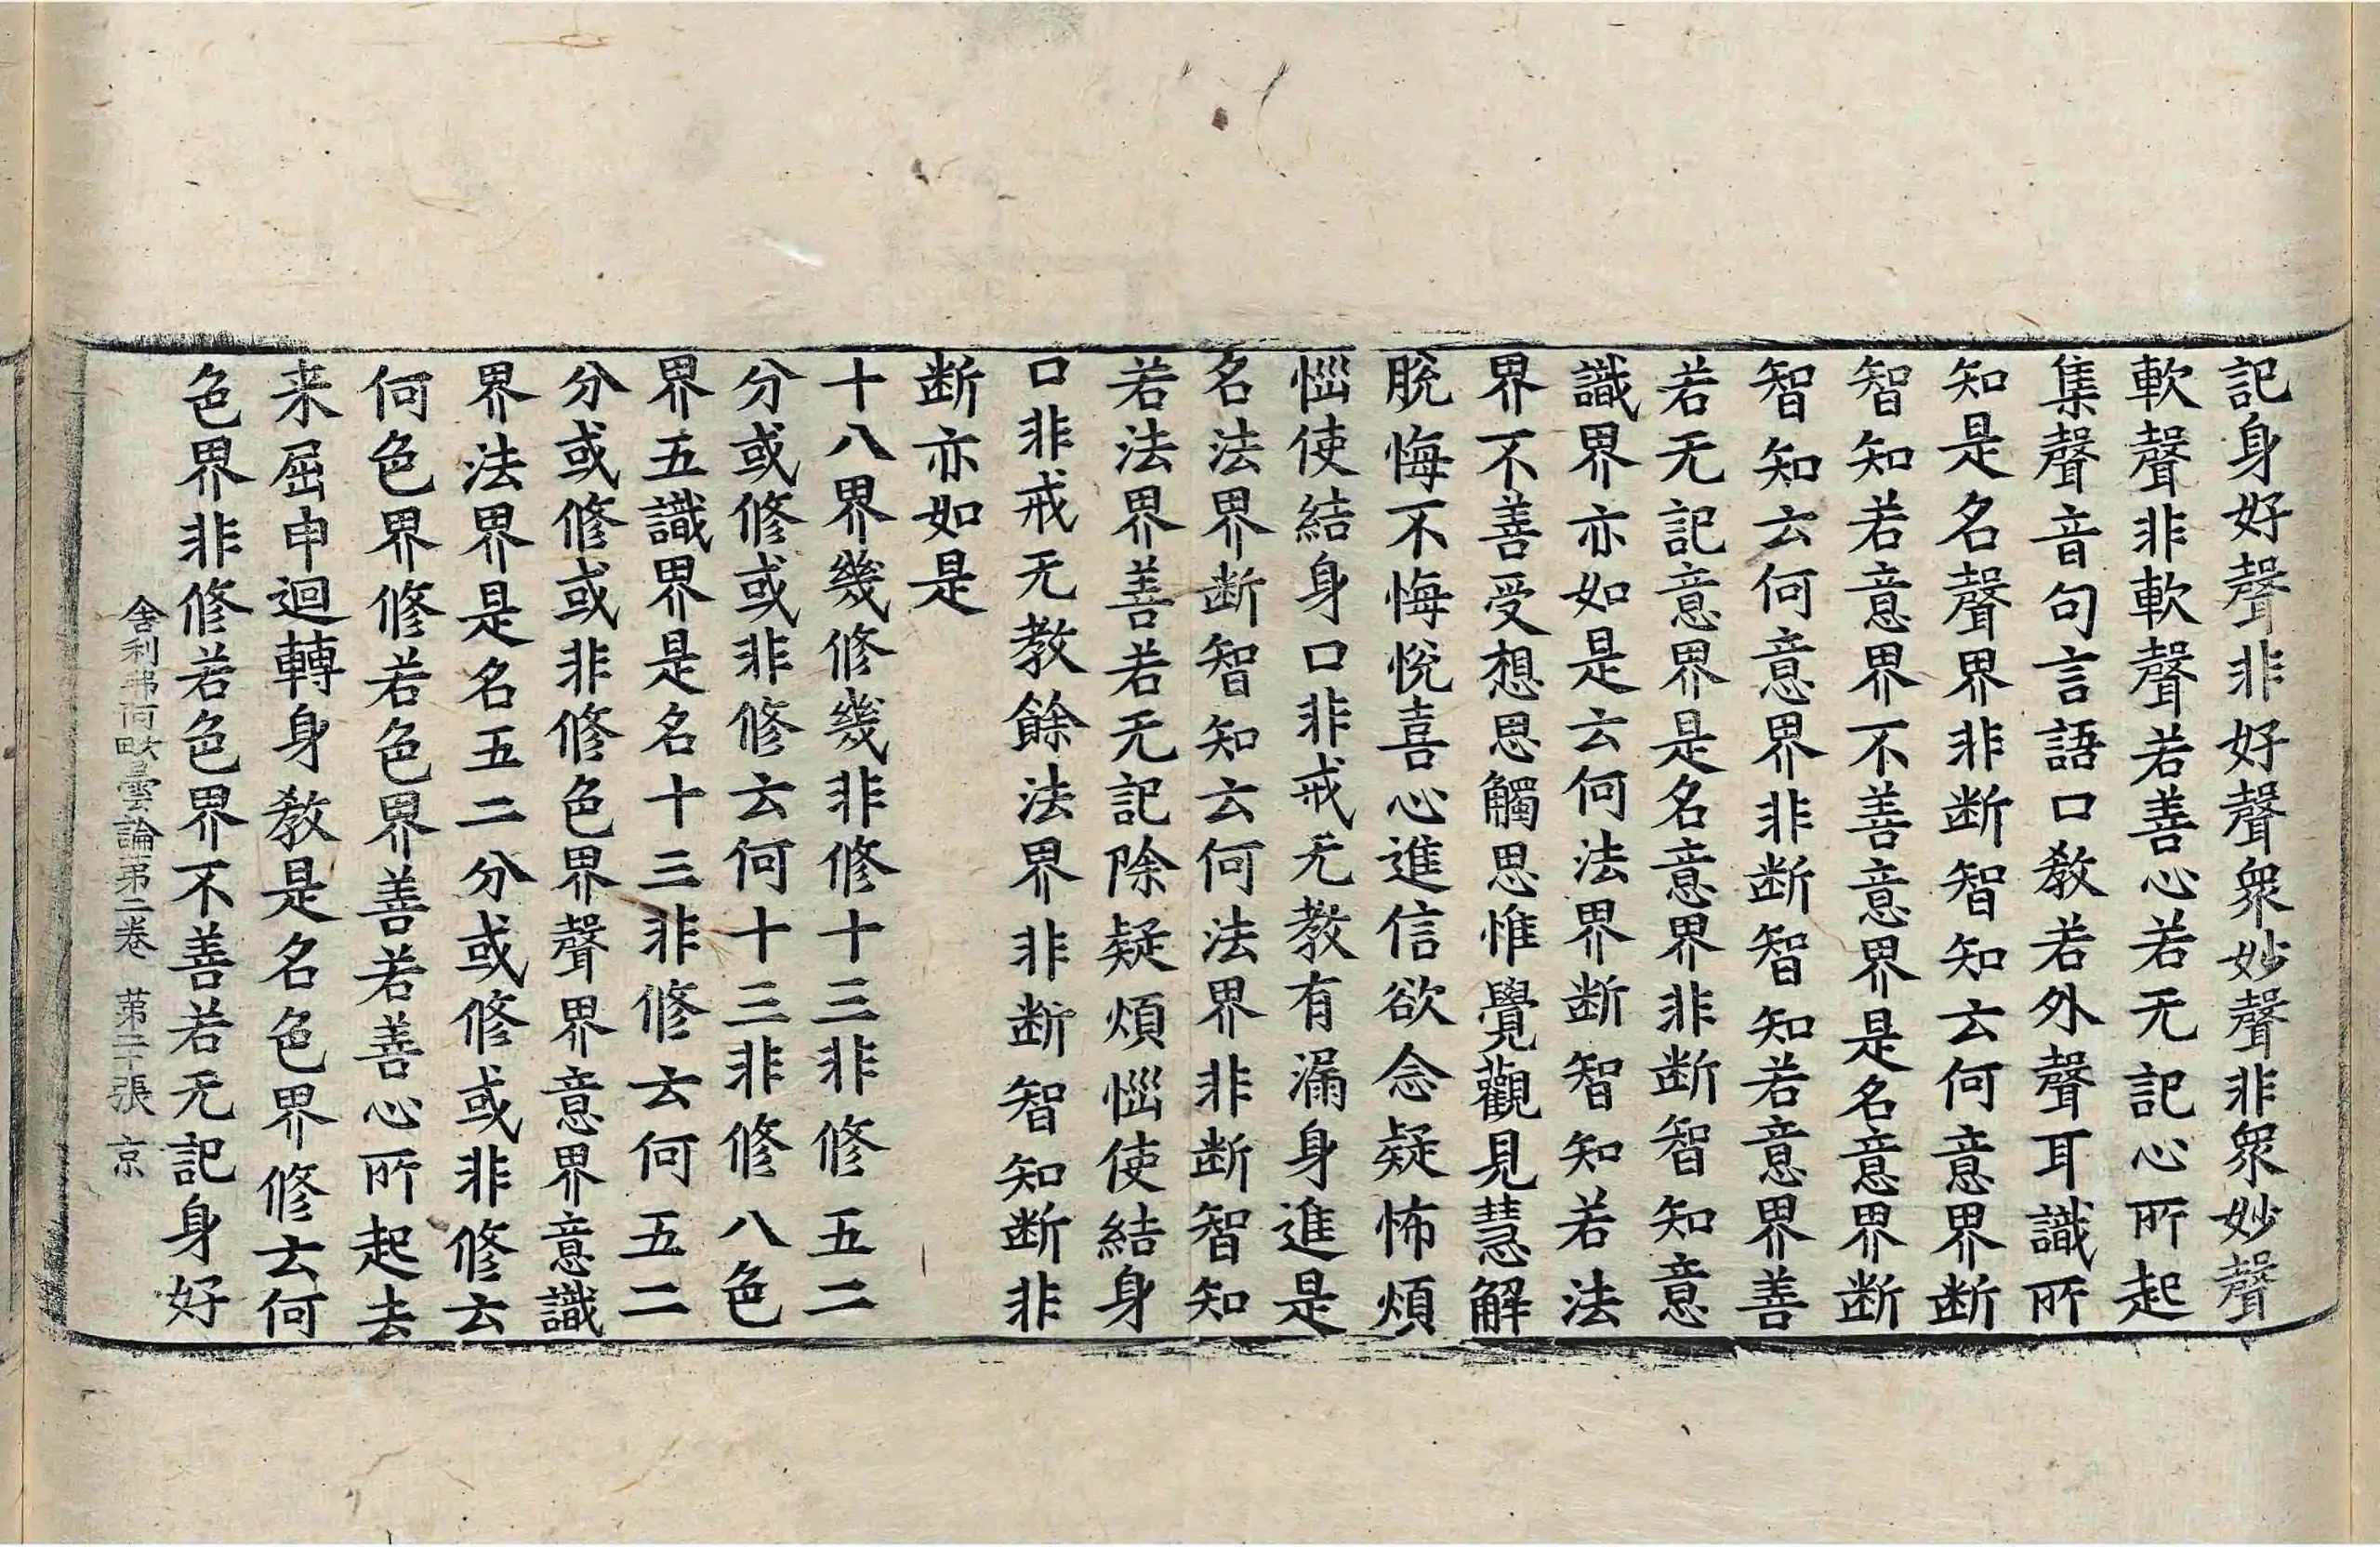 記身好聲非好聲衆妙聲非衆妙聲
軟聲非軟聲若善心若无記心所起
集聲音句言語口教若外聲耳識所
知是名聲界非断智知云何意界断
智知若意界不善意界是名意界断
智知云何意界非断智知若意界善
若无記意界是名意界非断智知意
識界亦如是云何法界断智知若法
界不善受想思觸思惟覺觀見慧解
脫悔不悔悅喜心進信欲念疑怖煩
惱使結身口非戒无教有漏身進是
名法界断智知云何法界非断智知
若法界善若无記除疑煩惱使結身
口非戒无教餘法界非断智知断非
断亦如是
十八界幾修幾非修十三非修五二
分或修或非修云何十三非修八色
界五識界是名十三非修云何五二
分或修或非修色界聲界意界意識
界法界是名五二分或修或非修云
何色界修若色界善若善心所起去
来屈申迴轉身教是名色界修云何
色界非修若色界不善若无記身好
舍利弗阿毗曇論第二卷 第二十張 京